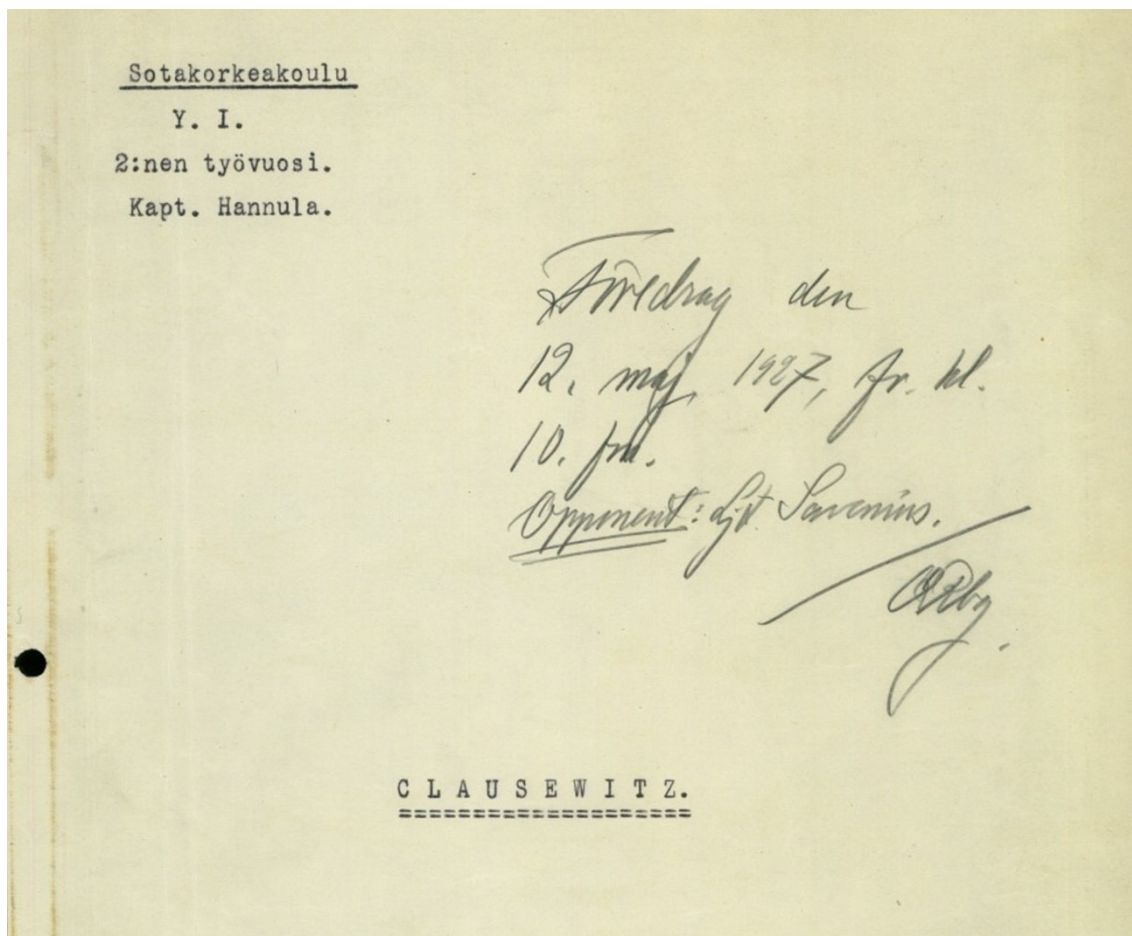 Sotakorkeakoulu
Y. I.
2:nen työvuosi.
Kapt. Hannula.
Föredrag den
12. maj 1927, fr. kl.
10. fm.
Opponent: Ljt. Savonius.
CLAUSEWITZ.